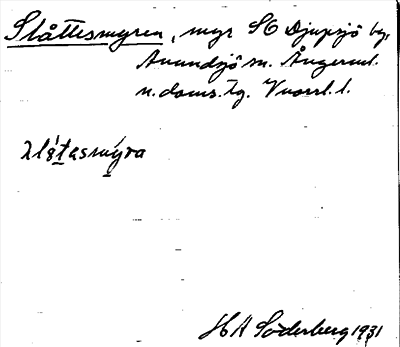 Slåttesmyren, myr SO Djupsjö by,
Anundsjö sn. Ångerml.
n. doms. tg. Vuorrl. 1.
slåtasmýra
H A Söderberg 1931